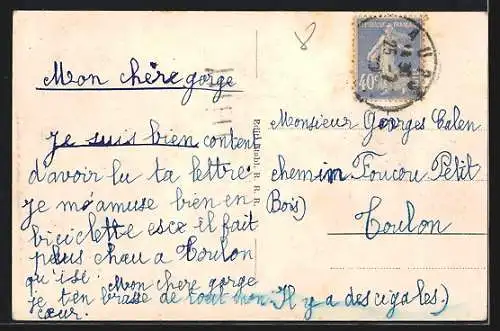 8
40c
Mon chère gorge
Je suis bien content
d'avoir lu ta lettre
je m'amuse bien en
biciclette esce il fait
plus chau a Toulon
qu'isi Mon chère gorge
je t'en brasse de tout mon
cœur.
Monsieur Georges Calen
chemin Foucou Petit
Bois)
Toulon
Il y a des cigales.)